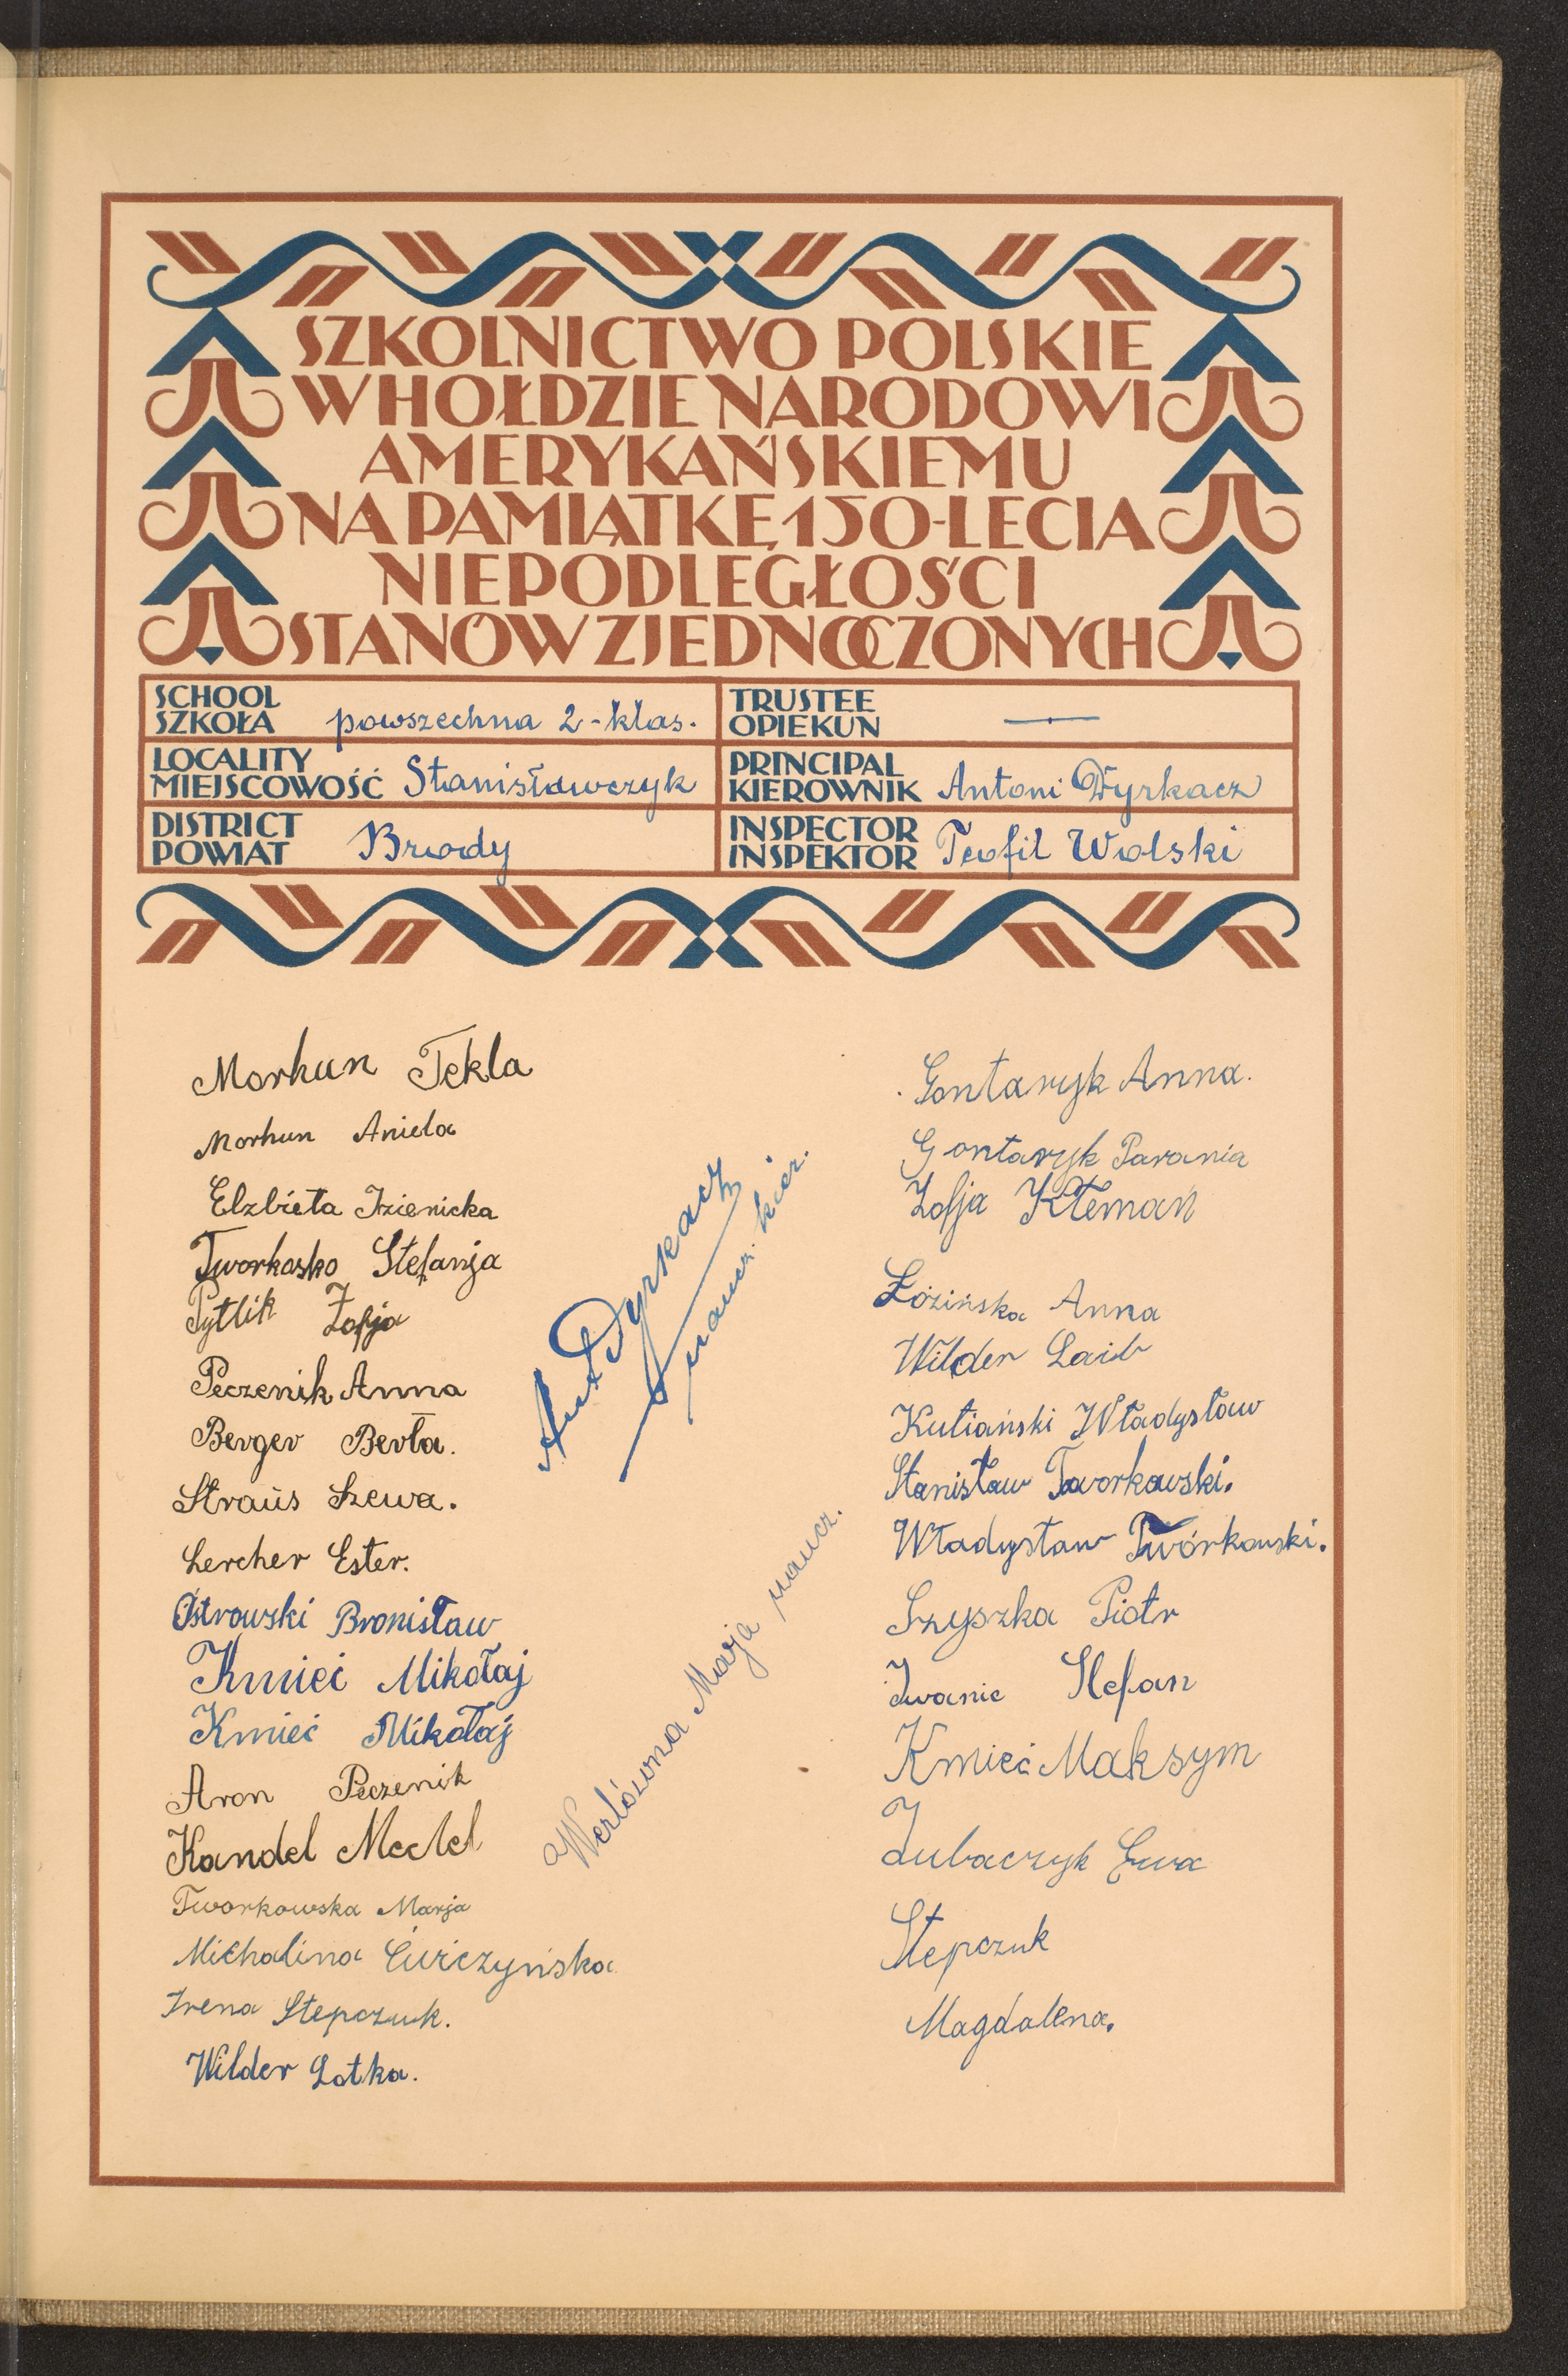 SZKOLNICTWO POLSKIE
W HOŁDZIE NARODOWI
AMERYKAŃSKIEMU
NA PAMIĄTKĘ 150-LECIA
NIEPODLEGŁOŚCI
STANÓW ZJEDNOCZONYCH
SCHOOL
SZKOŁA powszechna 2-klas.
TRUSTEE
OPIEKUN —
LOCALITY
MIEJSCOWOŚĆ Stanisławczyk
PRINCIPAL
KIEROWNIK Antoni Dyrkacz
DISTRICT
POWIAT Brody
INSPECTOR
INSPEKTOR Teofil Wolski
Morhun Tekla
Morhun Aniela
Elzbieta
Tworkosko Stefanja
Pytlik Zofja
Peczenik Anna
Berger Berta.
Straus Szewa.
Lercher Ester.
Ostrowski Bronisław
Kmieć Mikołaj
Kmieć Mikołaj
Aron Peczenik
Kandel Mechel
Tworkowska Marja
Michalina Ćwiczyńska
Irena Stepczuk.
Wilder Lotka.
Ant Dyrkacz
naucz. kier.
Werlówna Marja naucz.
Gontaryk Anna.
Gontaryk Parania
Zofja Kłemań
Łozińska Anna
Wilder Laib
Kutiański Władysław
Stanisław Tworkowski.
Władysław Twórkowski.
Szyszka Piotr
Iwanic Stefan
Kmieć Maksym
Zubaczyk Ewa
Stepczuk
Magdalena.